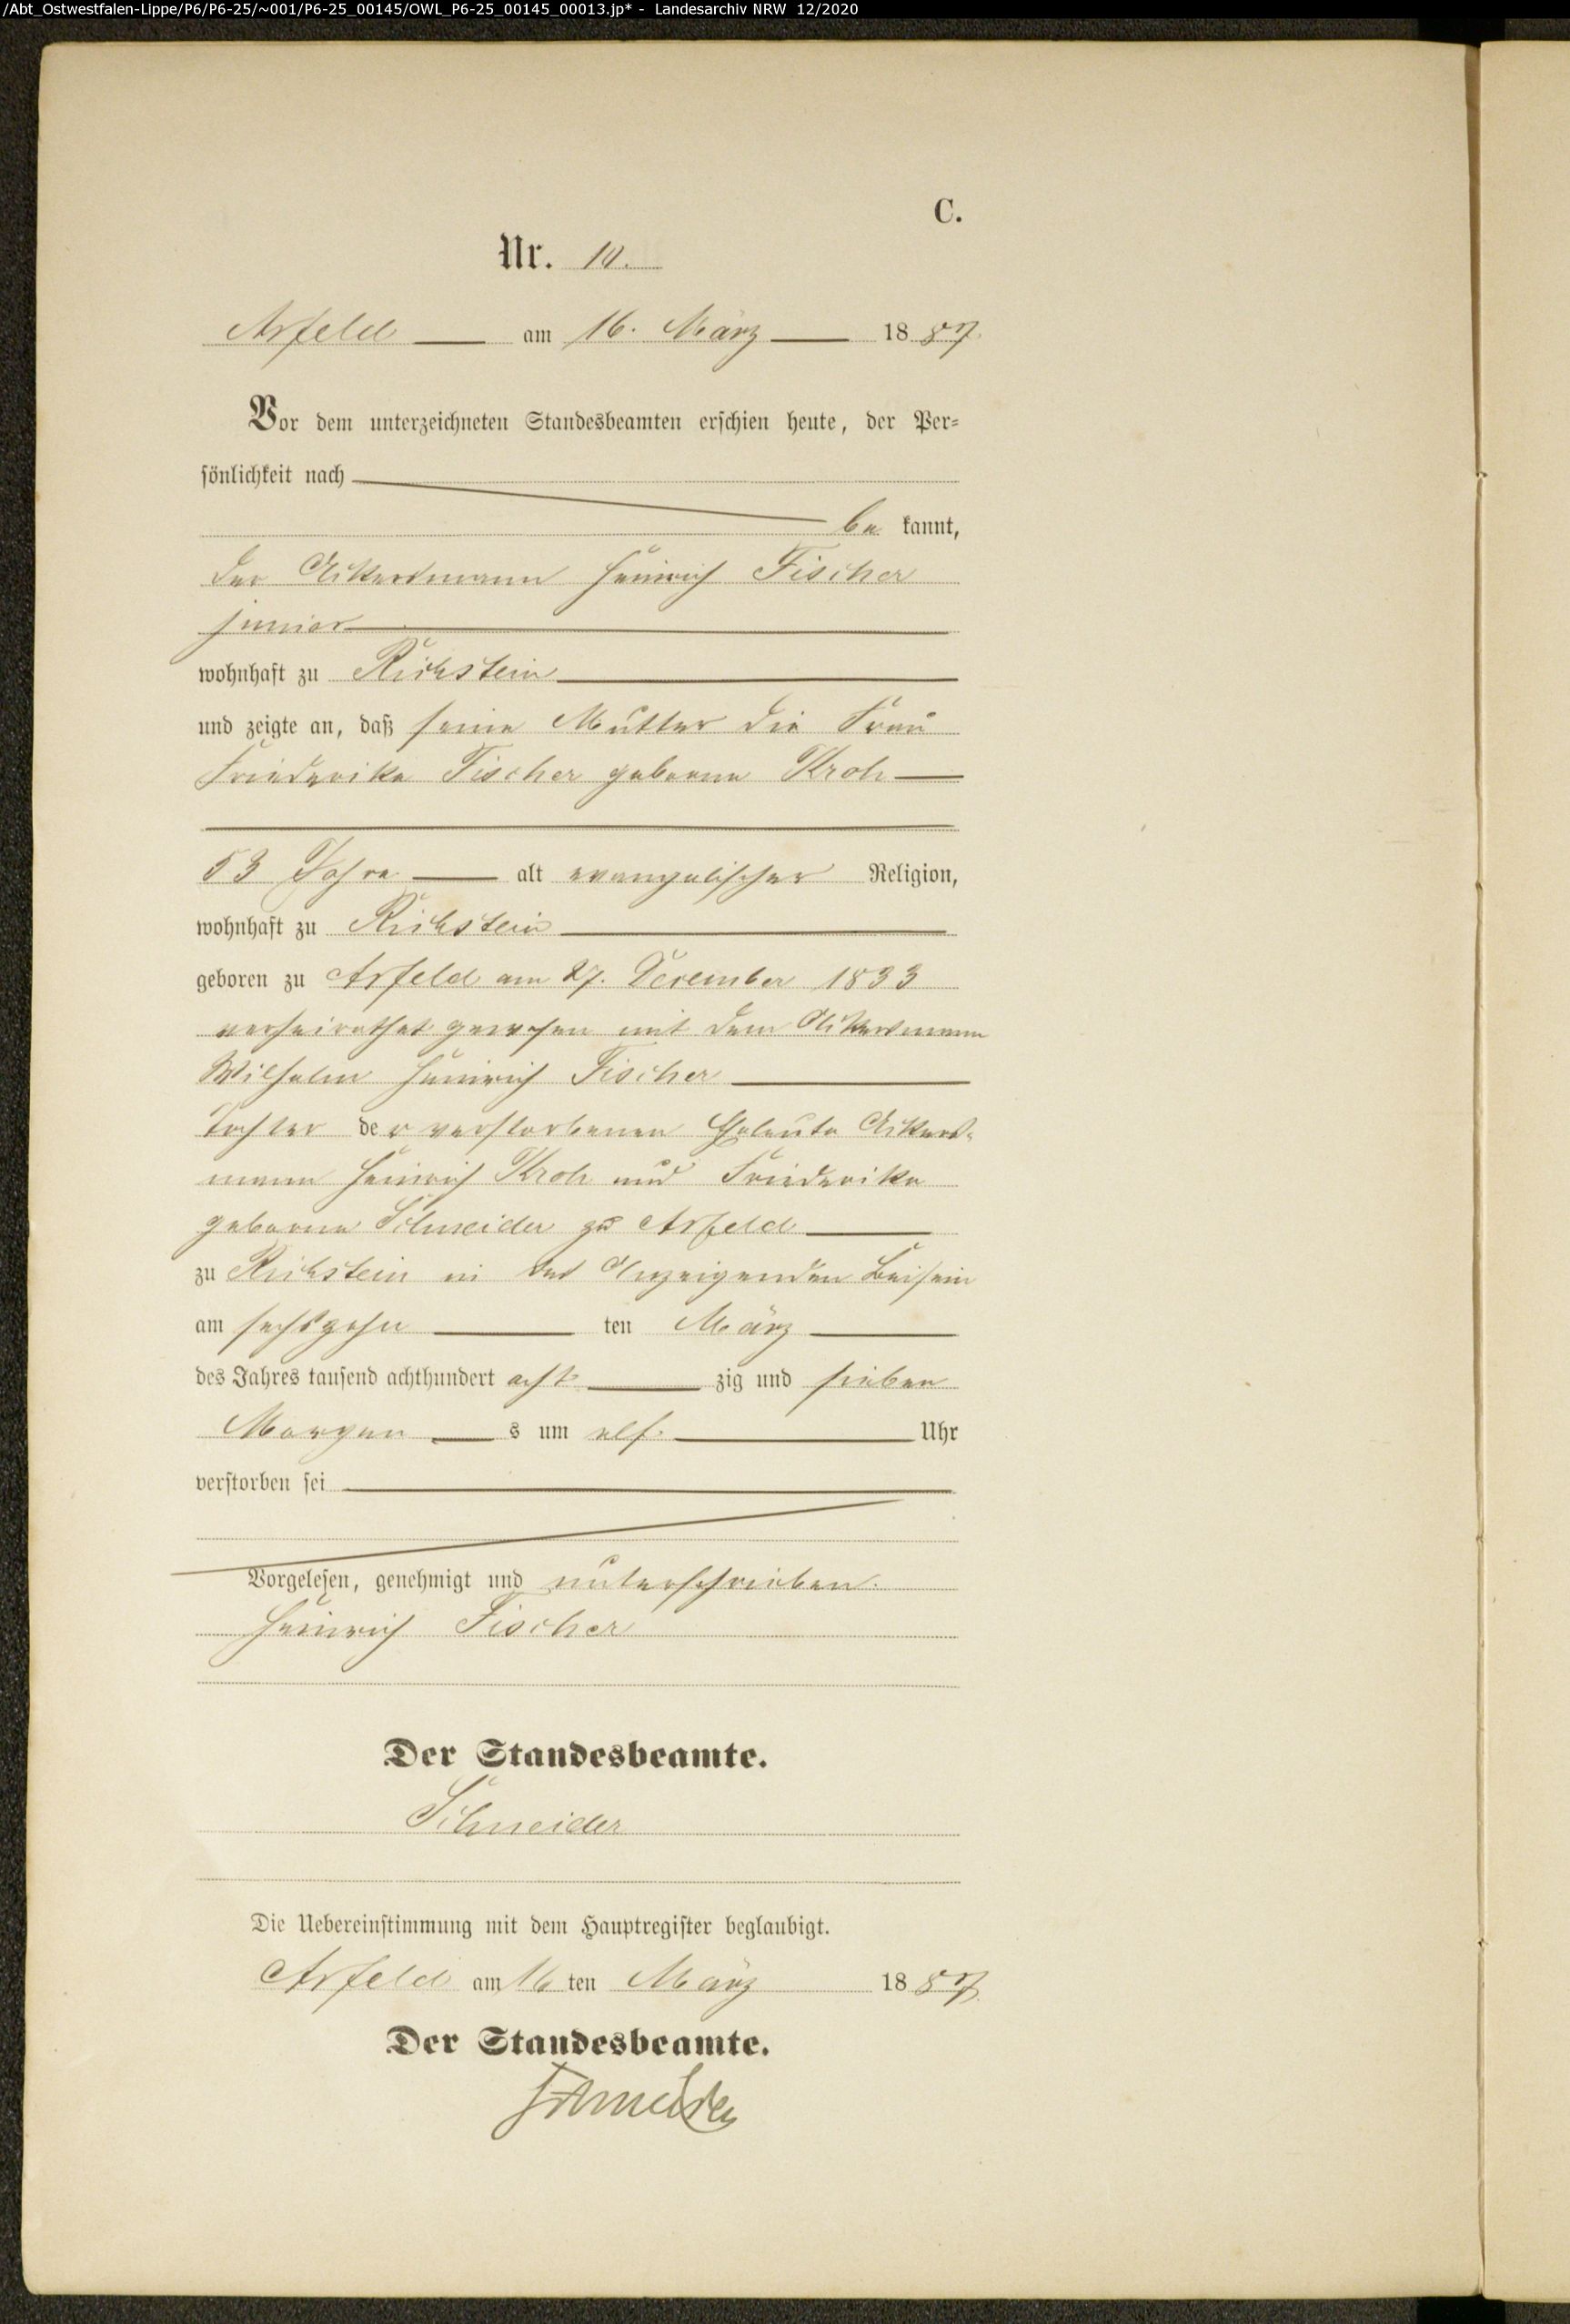 /Abt_Ostwestfalen-Lippe/P6/P6-25/~001/P6-25_00145/OWL_P6-25_00145_00013.jp* - Landesarchiv NRW 12/2020
C.
Nr. 10.
Arfeld am 16. März 1887.
Vor dem unterzeichneten Standesbeamten erschien heute, der Per-
sönlichkeit nach
be kannt,
der Ackersmann Heinrich Fischer
junior
wohnhaft zu Richstein
und zeigte an, daß seine Mutter die Frau
Friederike Fischer geborne Kroh
53 Jahre alt evangelischer Religion,
wohnhaft zu Richstein
geboren zu Arfeld am 27. December 1833
verheirathet gewesen mit dem Ackersmann
Wilhelm Heinrich Fischer
Tochter der verstorbenen Eheleute Ackers-
mann Heinrich Kroh und Friederike
geborne Schneider zu Arfeld
zu Richstein in des Anzeigenden Beisein
am sechszehn ten März
des Jahres tausend achthundert acht zig und sieben
Morgen s um elf Uhr
verstorben sei
Vorgelesen, genehmigt und unterschrieben.
Heinrich Fischer
Der Standesbeamte.
Schneider
Die Uebereinstimmung mit dem Hauptregister beglaubigt.
Arfeld am 16 ten März 1887.
Der Standesbeamte.
Schneider